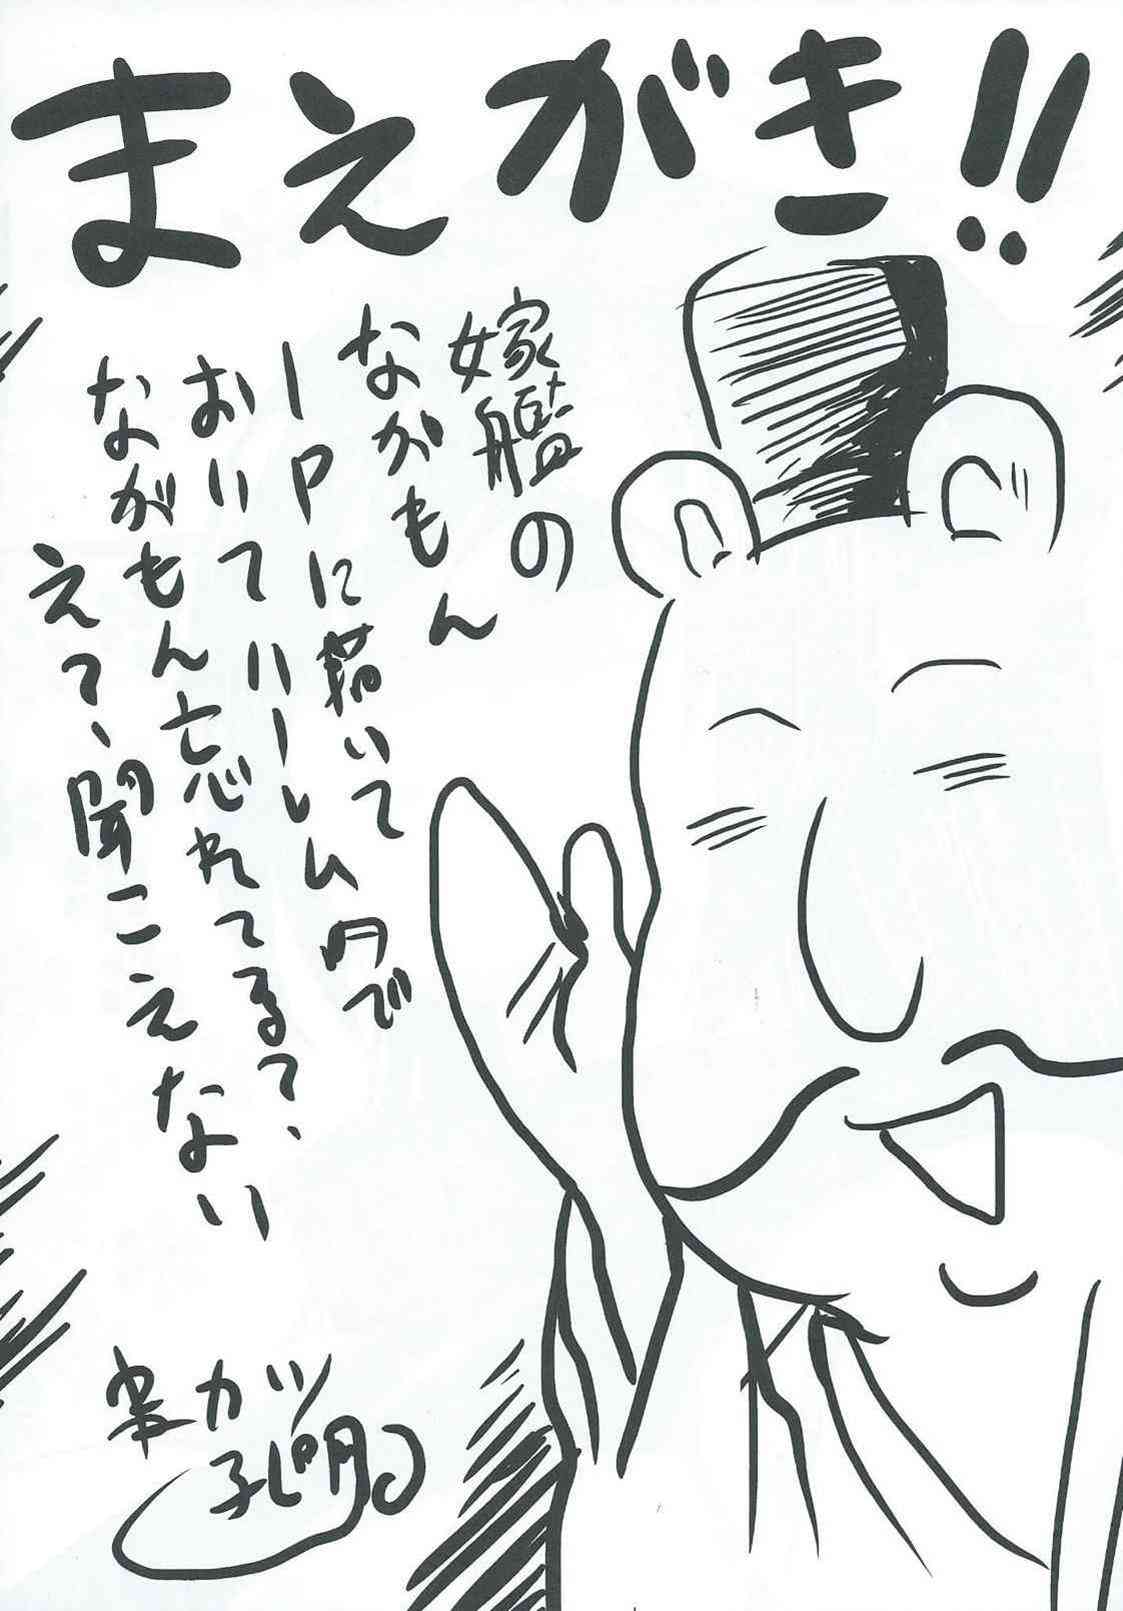 まえがき!!
嫁艦の
ながもん
1Pに描いて
おいてハーレム内で
ながもん忘れてる?、
えて、聞こえない
家カツ
孔明